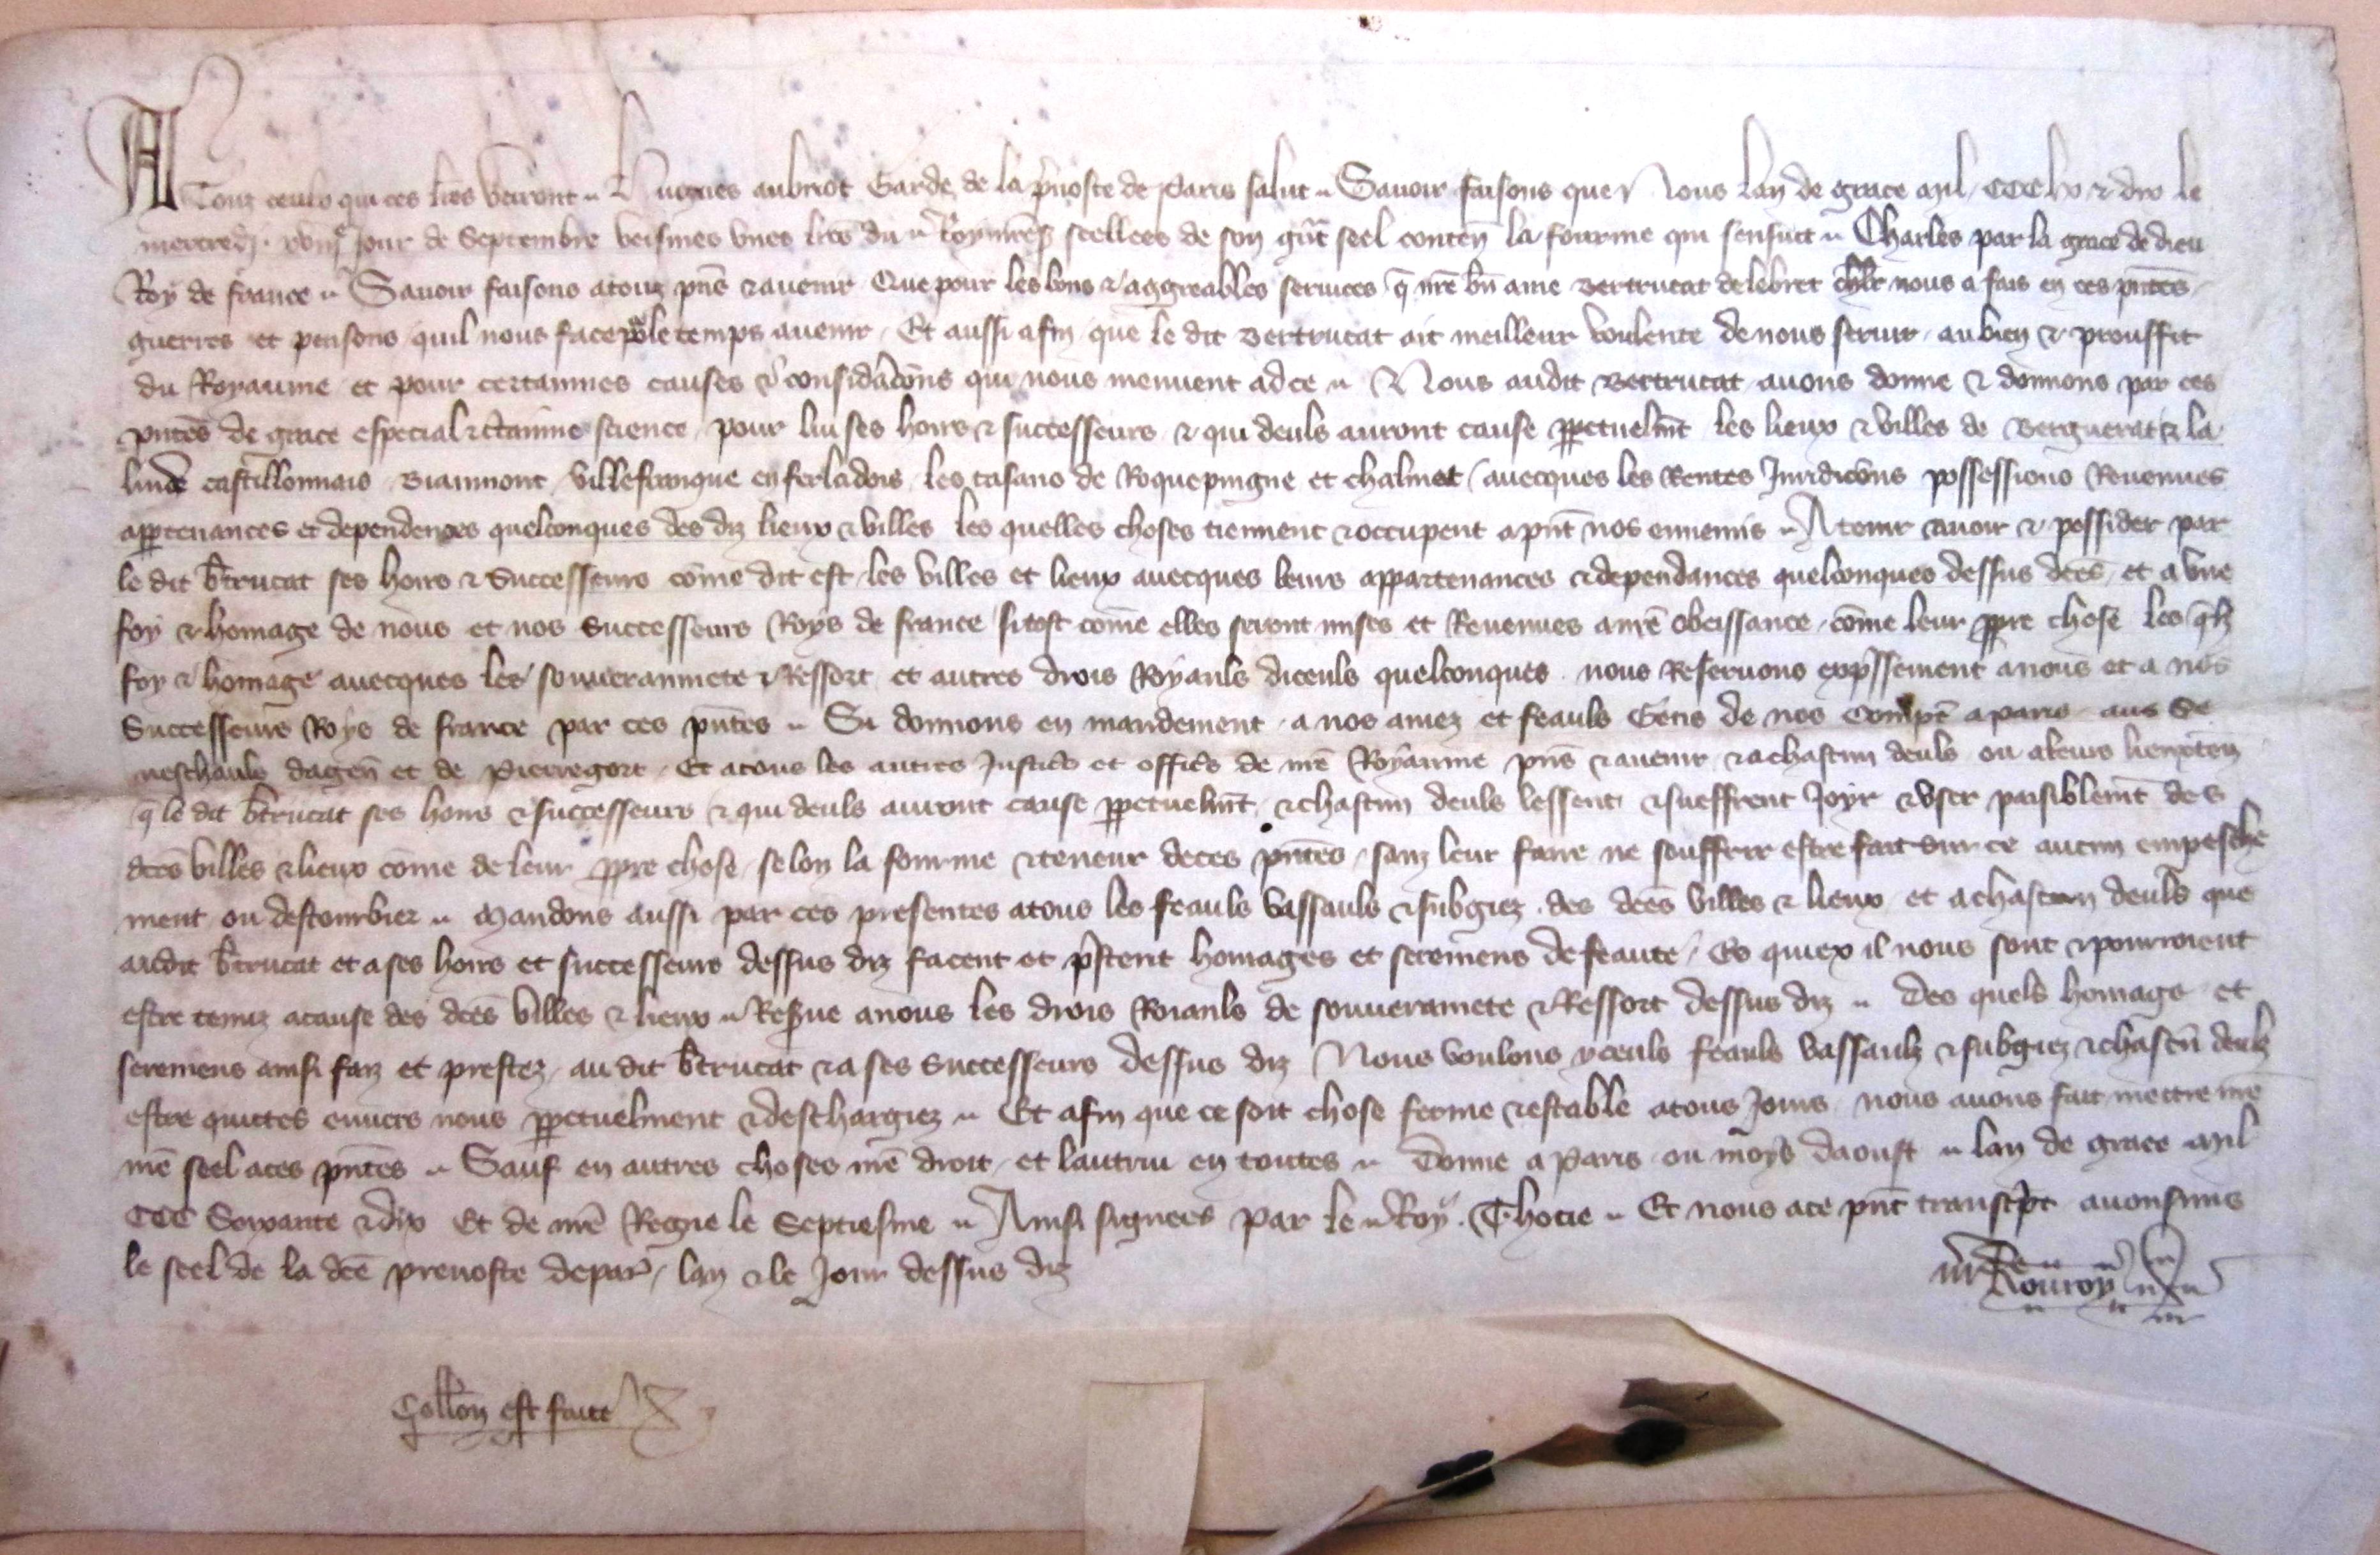 A Touz ceuls qui ces lres verront Hugues aubriot Garde de la prevoste de Paris salut Savoir faisons que Nous lan de grace mil CCC lx & dix le
mercredi xviije jour de Septembre veismes unes lres du Roy nre scellees de son grāt seel conten̄ la fourme qui sensuit Charles par la grace de dieu
Roy de france Savoir faisons a touz pn̄s & avenir Que pour les bons & aggreables services q̄ nr̄e bn̄ ame Bertrucat delebret chl̄r nous a fais en ces pn̄tes
guerres et pensons quil nous face ou temps avenir Et aussi afin que le dit Bertrucat ait meilleur voulente de nous servir au bien & prouffit
du Royaume et pour certainnes causes & considāc̄ons qui nous meuvent ad ce Nous audit Bertrucat avons donne & donnons par ces
pn̄tes de grace especial & c̄tainne science pour lui ses hoirs & successeurs & qui deuls auront cause ꝑpetuelm̄t les lieux & villes de Bergueratz la
linde castillonnais Biaumont villefranque en ferladois les casans de Roquepingne et chalmet avecques les Rentes Juridic̄ons possessions Revenues
apꝑtenances et dependences quelconques des diz lieux & villes les quelles choses tiennent & occupent a pn̄t nos ennemis A tenir avoir & possider par
le dit B̄trucat ses hoirs & Successeurs com̄e dit est les villes et lieux avecques leurs appartenances & dependances quelconques dessus dc̄es et a une
foy & homage de nous et nos Successeurs Roys de france si tost com̄e elles seront mises et Revenues a nr̄e obeissance com̄e leur ꝓpre chose les q̄lz
foy & homage avecques les souverainnete & Ressort et autres drois Royauls diceuls quelconques nous Reservons exp̄ssement a nous et a nos
Successeurs Roys de france par ces pn̄tes Si donnons en mandement a nos amez et feauls Gens de nos Compt̄ a paris aus Se
neschauls dagen̄ et de Pierregort Et a tous les autres Justic̄s et offic̄s de nr̄e Royaume pn̄s & avenir & a chascun deuls ou a leurs lieuxten̄
q̄ le dit B̄trucat ses hoirs & successeurs & qui deuls auront cause ꝑpetuelm̄t & chascun deuls lessent & sueffrent Joyr & user paisiblem̄t des
dc̄es villes & lieux com̄e de leur ꝓpre chose selon la fourme & teneur de ces pn̄tes sanz leur faire ne souffrir estre fait sur ce aucun empesche
ment ou destourbier Mandons aussi par ces presentes a tous les feauls vassauls & subgiez des dc̄es villes & lieux et a chascun deuls que
audit B̄trucat et a ses hoirs et successeurs dessus diz facent et p̄stent homages et seremens de feaute Es quiex il nous sont & pourroient
estre tenuz a cause des dc̄es villes & lieux Reserve a nous les drois Roiauls de souverainete & Ressort dessus diz des quels homage et
seremens ainsi faiz et prestez au dit B̄trucat & a ses Successeurs dessus diz Nous voulons yceuls feauls vassaulz & subgiez & chascū deulz
estre quittes envers nous ꝑpetuelment & deschargiez Et afin que ce soit chose ferme & estable a tous Jours nous avons fait mettre nr̄e
nr̄e seel a ces pn̄tes Sauf en autres choses nr̄e droit et lautrui en toutes Donne a Paris ou moys daoust lan de grace mil
CCC Soixante & dix Et de nr̄e Regne le Septiesme Ainsi signees Par le Roy. Thocie Et nous a ce pn̄t transc̄pt avons mis
le seel de la dc̄e prevoste de par̄ lan & le Jour dessus diz
Rouroy
Coll̄on est faite